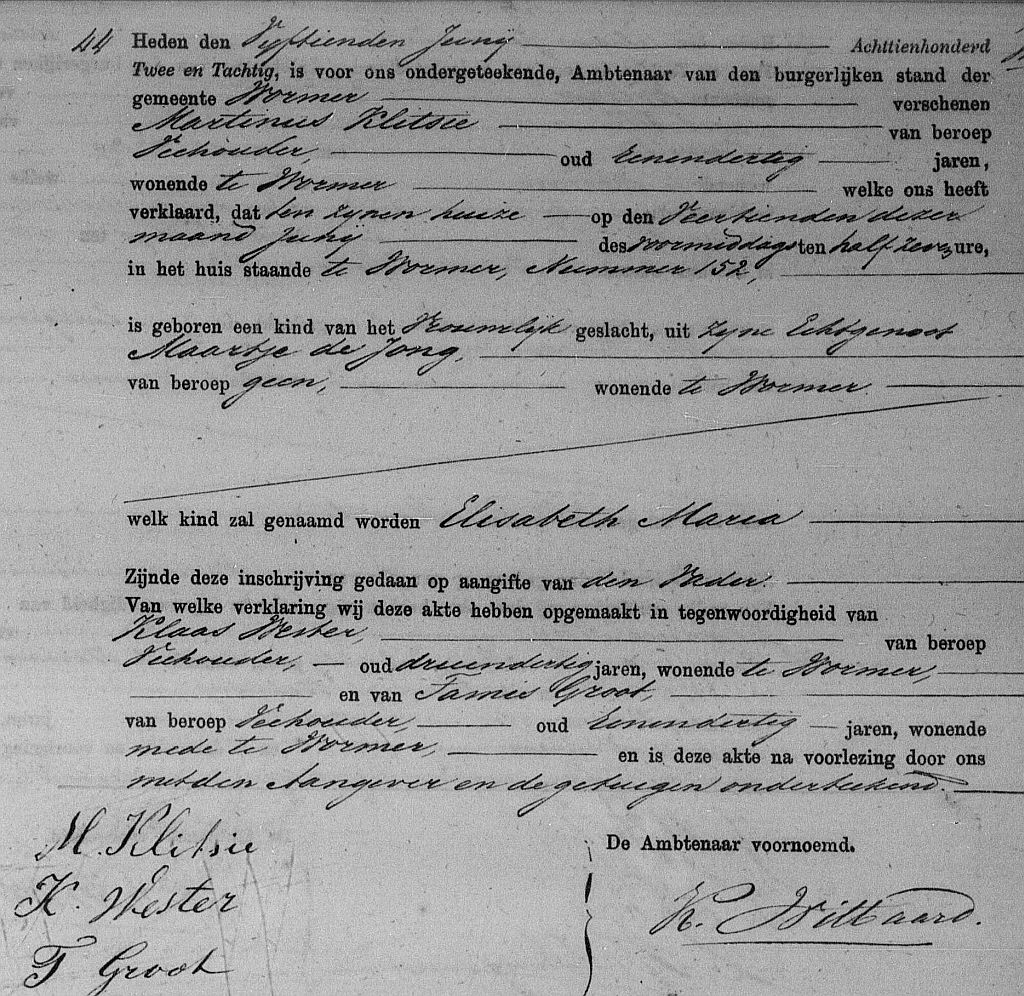 44 Heden den Vyftienden Juny Achttienhonderd
Twee en Tachtig, is voor ons ondergeteekende, Ambtenaar van den burgerlijken stand der
gemeente Wormer verschenen
Martinus Klitsie van beroep
Veehouder, oud Eenendertig jaren,
wonende te Wormer welke ons heeft
verklaard, dat ten zynen huize op den Veertienden dezer
maand Juny des voormiddags ten half zeven ure,
in het huis staande te Wormer, Nummer 152,
is geboren een kind van het Vrouwelyk geslacht, uit zyne Echtgenoot
Maartje de Jong,
van beroep geen, wonende te Wormer.
welk kind zal genaamd worden Elisabeth Maria
Zijnde deze inschrijving gedaan op aangifte van den Vader.
Van welke verklaring wij deze akte hebben opgemaakt in tegenwoordigheid van
Klaas Wester, van beroep
Veehouder, oud drieendertig jaren, wonende te Wormer,
en van Tamis Groot,
van beroep Veehouder, oud Eenendertig jaren, wonende
mede te Wormer, en is deze akte na voorlezing door ons
met den Aangever en de getuigen onderteekend.
M. Klitsie
De Ambtenaar voornoemd.
K. Wester
K. Wittaard.
T Groot